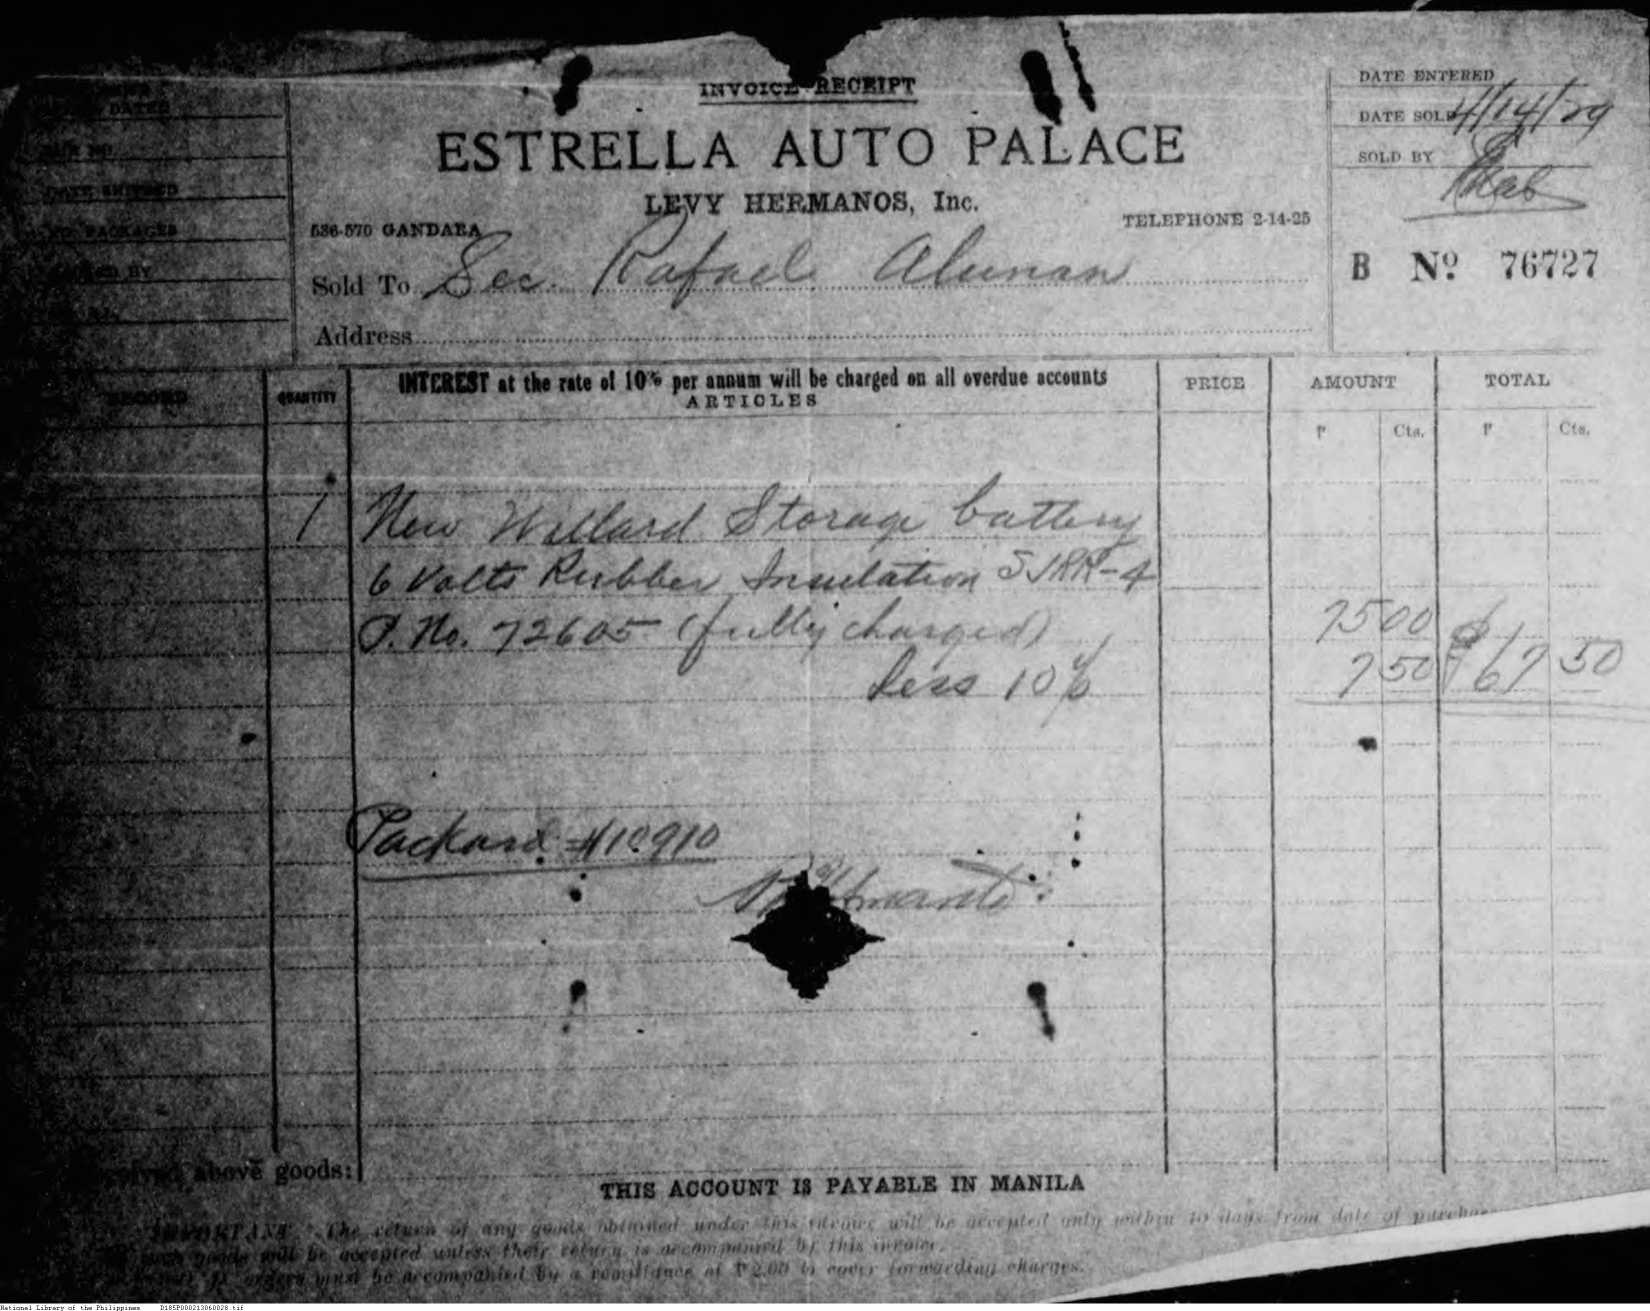 INVOICE RECEIPT
ESTRELLA AUTO PALACE
LEVY HERMANOS, Inc.
536-570 GANDARA
TELEPHONE 2-14-25
DATE ENTERED
DATE SOLD 4/14/29
SOLD BY
B Nº 76727
DATE SHIPPED
NO. PACKAGES
BY
Sold To Sec. Rafael Alunan
Address
RECORD
QUANTITY
INTEREST at the rate of 10% per annum will be charged on all overdue accounts
ARTICLES
PRICE
AMOUNT
TOTAL
₱ Cts. ₱ Cts.
1 New Willard Storage battery
6 Volts Rubber Insulation SJRR-4
P. No. 72605 (fully charged) 75 00
Less 10% 7 50 ₱ 67 50
Packard #10910
above goods:
THIS ACCOUNT IS PAYABLE IN MANILA
IMPORTANT The return of any goods obtained under this invoice will be accepted only within 10 days from date of
such goods will be accepted unless their return is accompanied by this invoice.
orders must be accompanied by a remittance of ₱2.00 to cover forwarding charges.
National Library of the Philippines D185P000213060028.tif